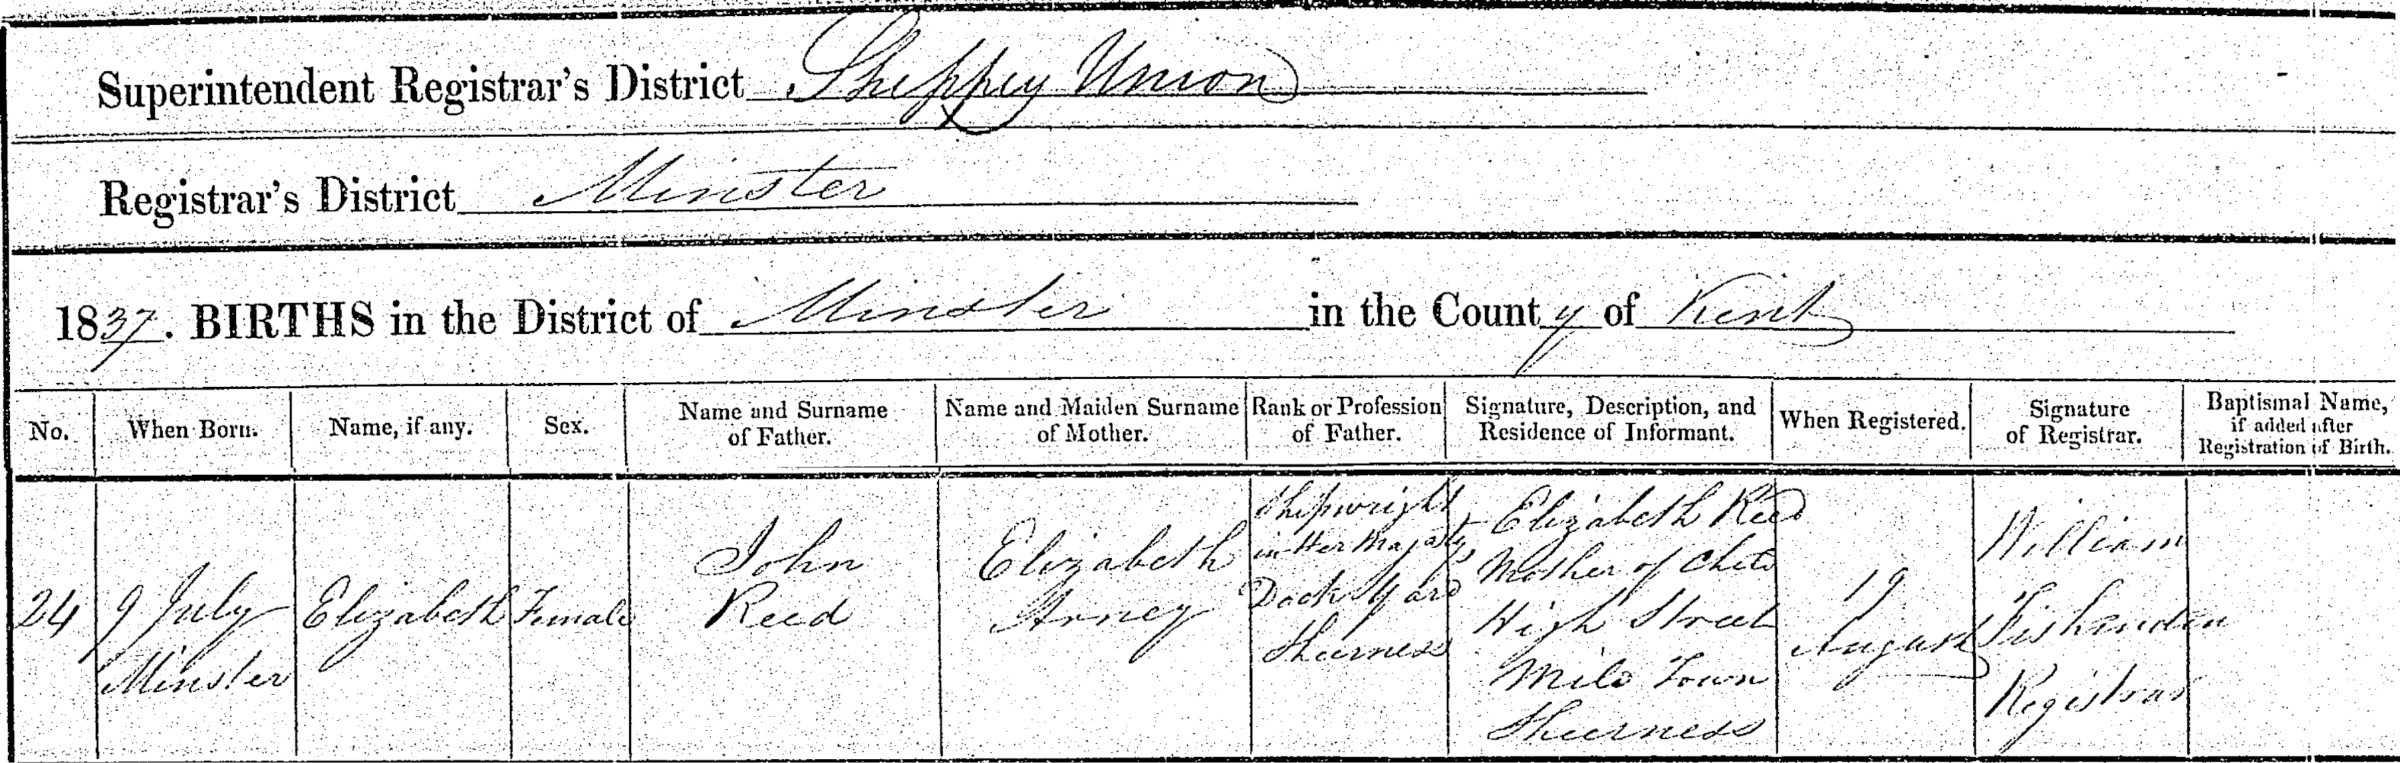 Superintendent Registrar's District Sheppey Union
Registrar's District Minster
1837. BIRTHS in the District of Minster in the County of Kent
No.
When Born.
Name, if any.
Sex.
Name and Surname
of Father.
Name and Maiden Surname
of Mother.
Rank or Profession
of Father.
Signature, Description, and
Residence of Informant.
When Registered.
Signature
of Registrar.
Baptismal Name,
if added after
Registration of Birth.
24
9 July
Minster
Elizabeth
Female
John
Reed
Elizabeth
Arney
Shipwright
in Her Majesty's
Dock Yard
Sheerness
Elizabeth Reed
Mother of Child
High Street
Mile Town
Sheerness
19
August
William
Registrar